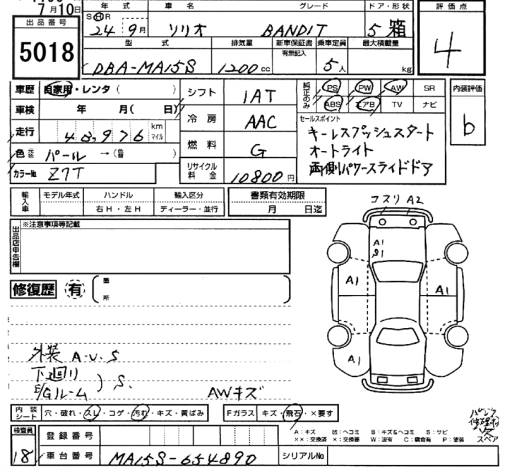 7月10日
年式 車名 グレード ドア・形状 評価点
出品番号
S H R
24年 9月 ソリオ BANDIT 5 箱
5018
型式 排気量 新車保証書 有無記入 乗車定員 最大積載量
4
DBA-MA15S 1200cc 5人 kg
車歴 自家用・レンタ( )
シフト 1AT
純正のみ PS PW AW SR
ABS エアB TV ナビ
内装評価
b
車検 年 月(日)
冷房 AAC
セールスポイント
キーレスプッシュスタート
オートライト
両側パワースライドドア
走行 48,976 km マイル
燃料 G
色 パール →( )
カラーNo. Z7T
リサイクル料金 10800円
輸入車 モデル年式 ハンドル 輸入区分 書類有効期限
右H・左H ディーラー・並行 月 日迄
出品店申告欄 ※注意事項等記載
コスリ A2
A1
S1
A1 A1
A1
修復歴 有 箇所
外装 A.U.S
下廻り
E/Gルーム ) S.
AWキズ
内装シート 穴・破れ・スレ・コゲ・汚れ・キズ・黄ばみ
Fガラス キズ・飛石・×要す
検査員
18
登録番号
A:キズ U:ヘコミ B:キズ&ヘコミ S:サビ
××:交換済 ×:要交換 W:波有 C:腐食有 P:塗装
スペア
車台番号 MA15S-654890 シリアルNo